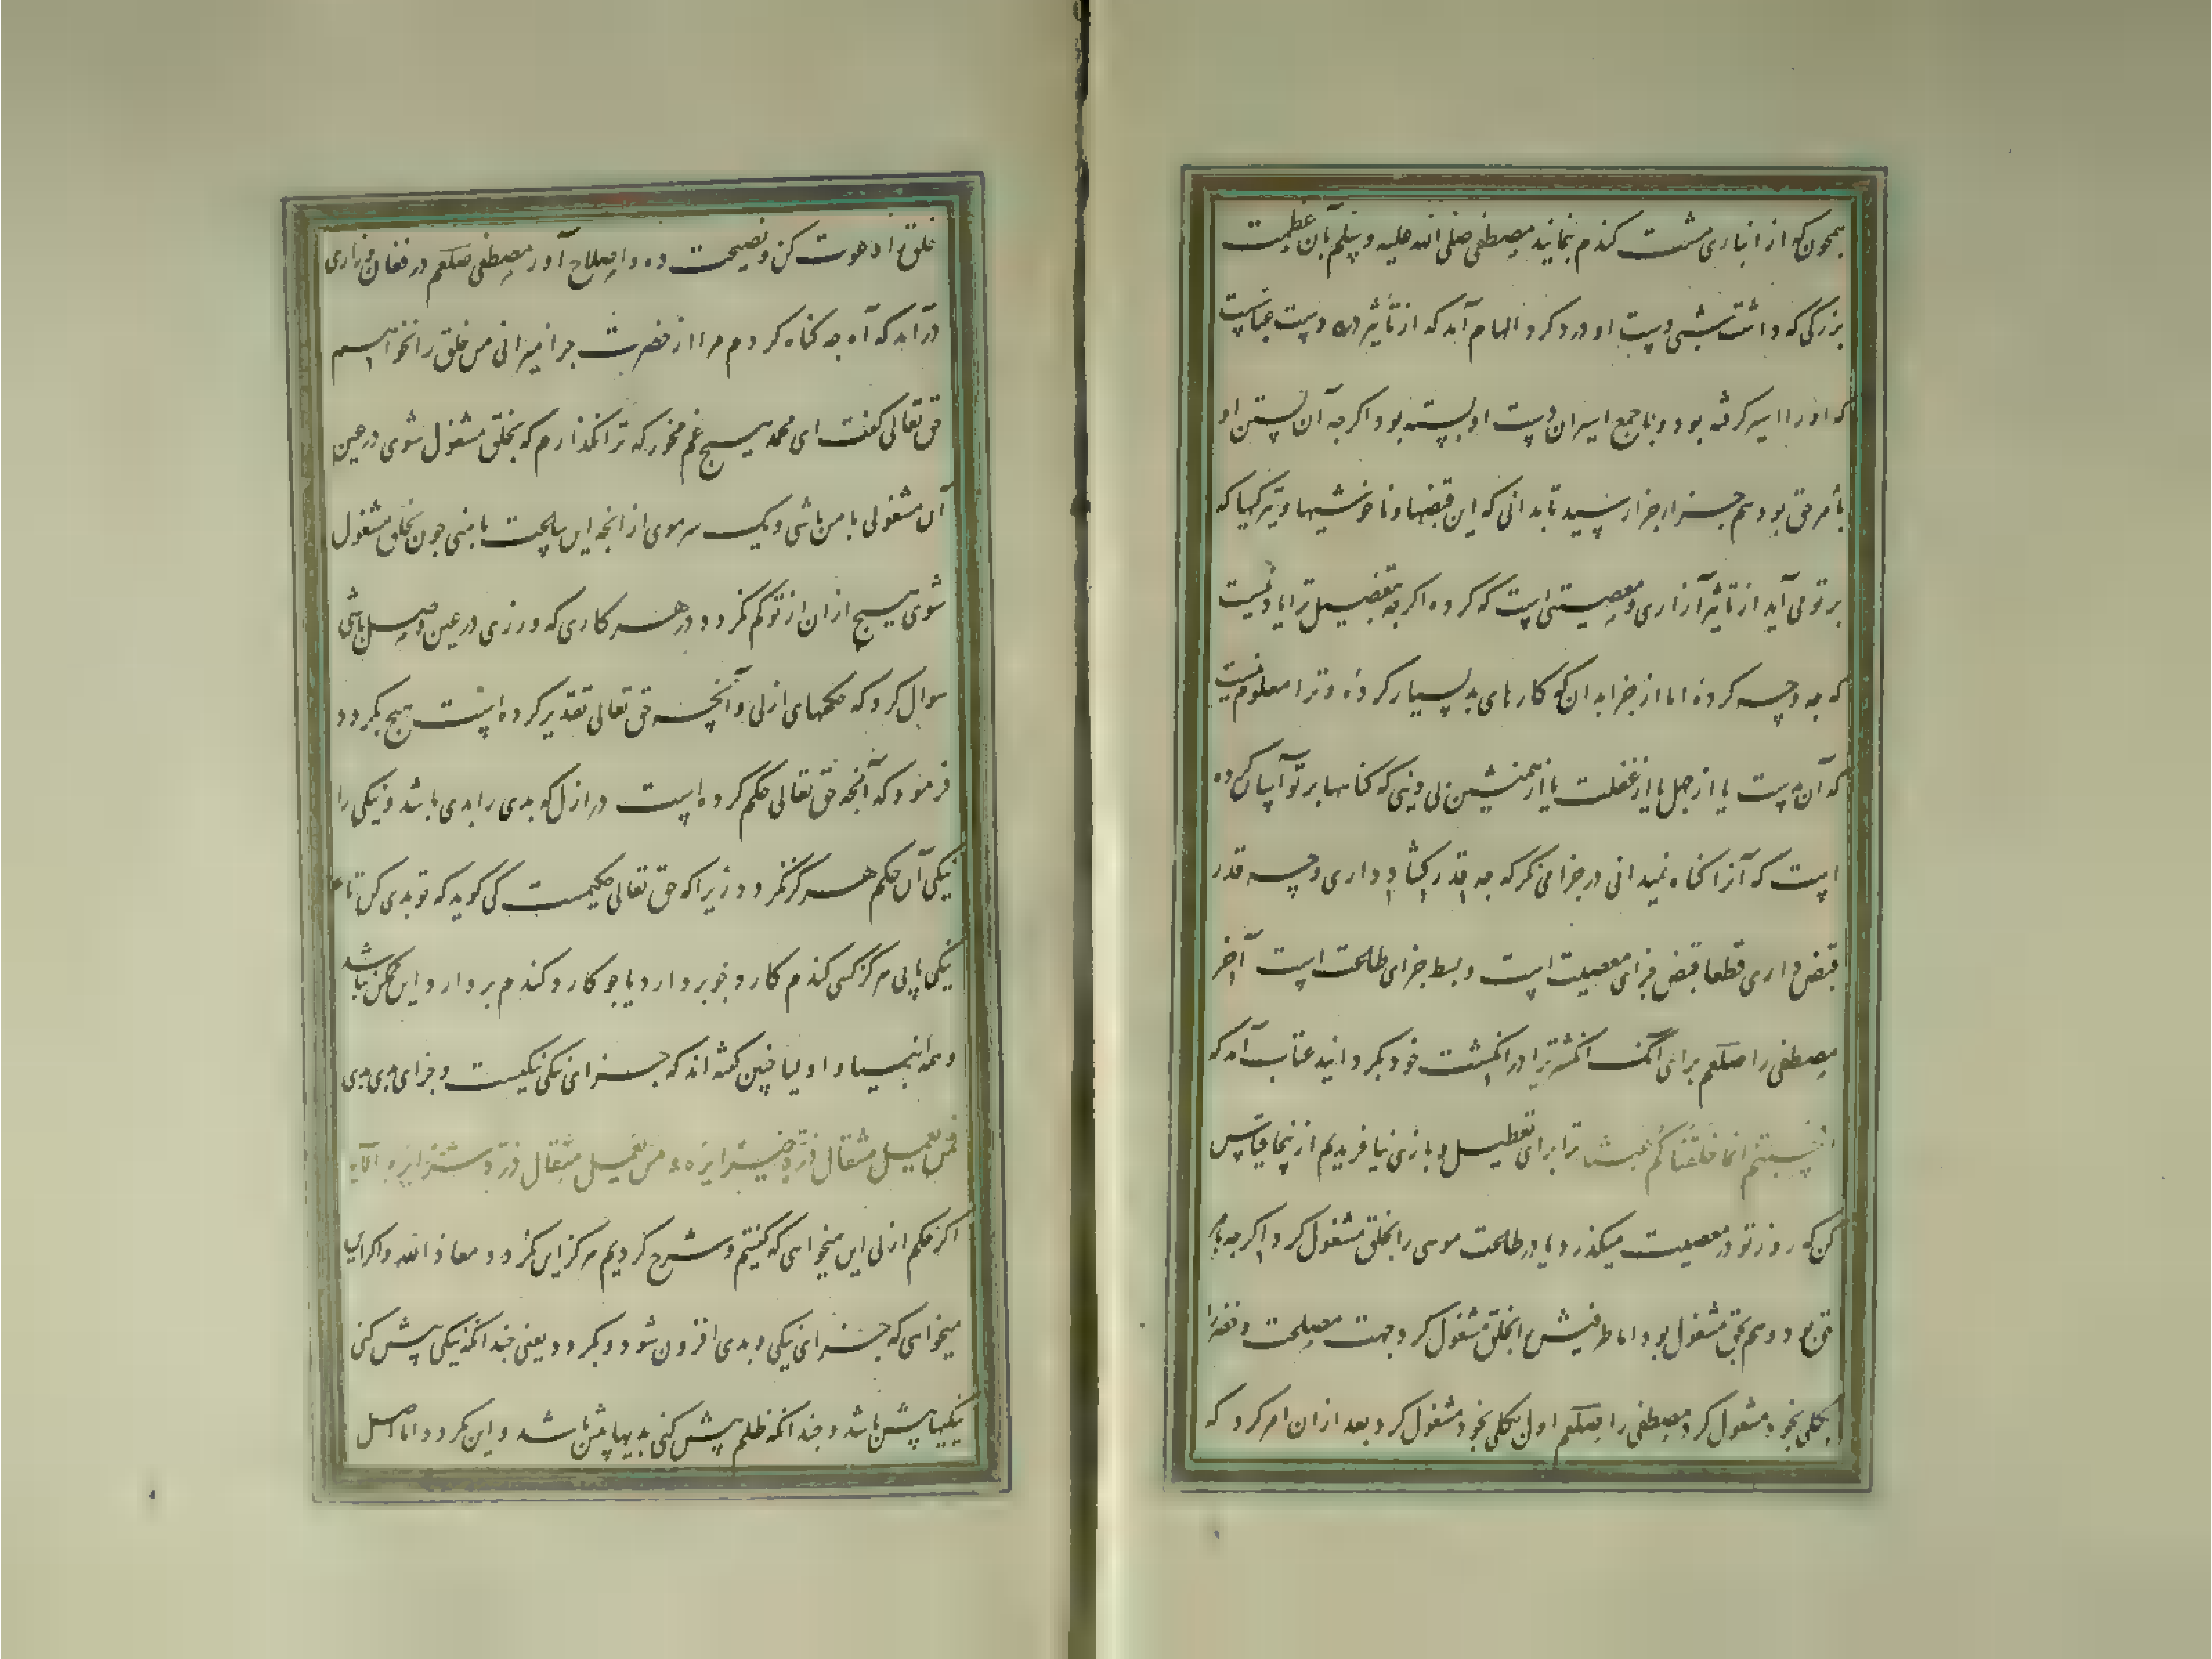 همچون که از انباری مشت کندم بنمایند مصطفی صلی الله علیه وسلم بآن عظمت
بزرگی که داشت شبی دست او درد کرد الهام آمد که از تأثیر درد دست عباست
که او را اسیر کرفته بود و با جمع اسیران دست او بسته بود اکرچه آن بستن او
بأمر حق بود هم جزا رسید تا بدانی که این قبضها و ناخوشیها و تیرکیها که
بر تو می آید از تأثیر آزاری و معصیتی است که کرده اکرچه بتفصیل ترا یاد نیست
که چه و چه کردۀ اما از جزا بدان که کارهای بد بسیار کردۀ و ترا معلوم نیست
که آن بدست یا از جهل یا از غفلت یا از همنشین بی دینی که کناهها بر تو آسان کرده
است که آنرا کناه نمیدانی در جزا می نکر که چه قدر کشاد داری و چه قدر
قبض داری قطعا قبض جزای معصیت است و بسط جزای طاعت است آخر
مصطفی را صلعم برای آنک انکشتریرا در انکشت خود بکردانید عتاب آمد که
افحسبتم انما خلقناکم عبثا ترا برای تعطیل و بازی نیافریدیم از ینجا قیاس
کن که روز تو در معصیت میکذرد یا در طاعت موسی را بخلق مشغول کرد اکرچه بامر
حق بود و هم بحق مشغول بود اما طرفیش را بخلق مشغول کرد جهت مصلحت و خضر را
بکلی بخود مشغول کرد مصطفی را صلعم اول بکلی بخود مشغول کرد بعد از ان امر کرد که
خلق را دعوت کن و نصیحت ده و اصلاح آور مصطفی صلعم در فغان و زاری
درآمد که آه چه کناه کردم مرا از حضرت چرا میرانی من خلق را نخواهم
حق تعالی کفت ای محمد هیچ غم مخور که ترا نکذارم که بخلق مشغول شوی در عین
آن مشغولی با من باشی و یک سر موی از انچه این ساعت با منی چون بخلق مشغول
شوی هیچ از ان از تو کم نکردد در هر کاری که ورزی در عین وصل باشی
سوال کرد که حکمهای ازلی و آنچه حق تعالی تقدیر کرده است هیچ بکردد
فرمود که آنچه حق تعالی حکم کرده است در ازل که بدی را بدی باشد و نیکی را
نیکی آن حکم هرکز نکردد زیرا که حق تعالی حکیمست کی کوید که تو بدی کن تا
نیکی یابی هرکز کسی کندم کارد جو بردارد یا جو کارد کندم بردارد این ممکن نباشد
و همه انبیا و اولیا چنین کفته اند که جزای نیکی نیکیست و جزای بدی بدی
فمن یعمل مثقال ذرة خیرا یره و من یعمل مثقال ذرة شرا یره الآیه
اکر حکم ازلی این میخواهی که کفتیم و شرح کردیم هرکز این نکردد معاذ الله و اکر این
میخواهی که جزای نیکی و بدی افزون شود و بکردد یعنی چندانکه نیکی پیش کنی
نیکیها پیش باشد و چندانکه ظلم پیش کنی بدیها پیش باشد و این بکردد اما اصل